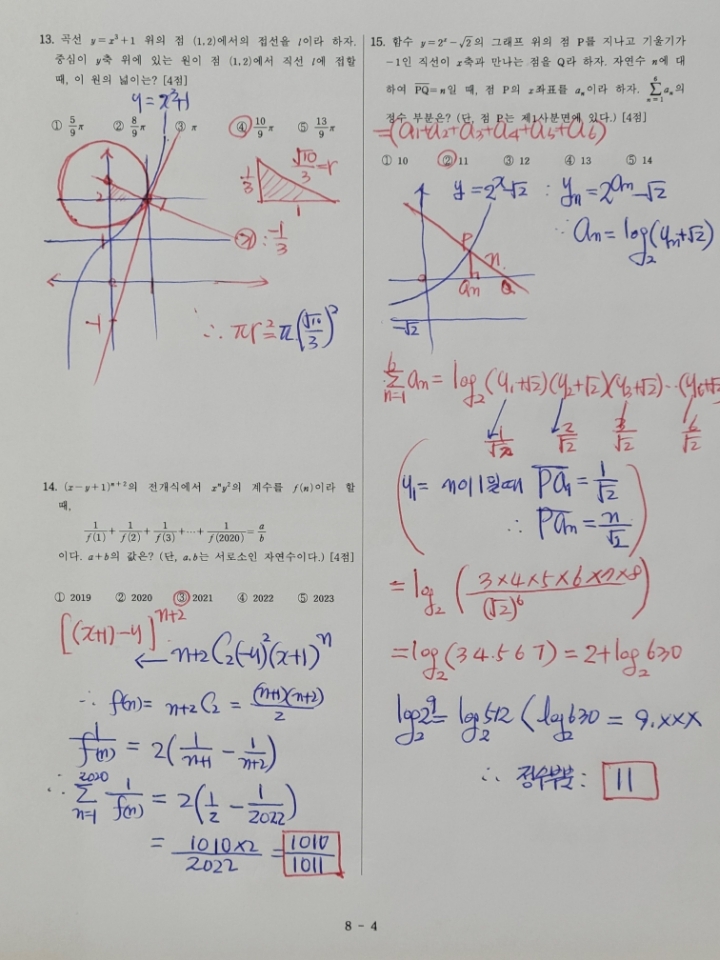 13. 곡선 y=x³+1 위의 점 (1,2)에서의 접선을 l이라 하자.
중심이 y축 위에 있는 원이 점 (1,2)에서 직선 l에 접할
때, 이 원의 넓이는? [4점]
y=x³+1
① 5/9 π ② 8/9 π ③ π ④ 10/9 π ⑤ 13/9 π
1/3
√10/3=r
1
2
1
: -1/3
-1
∴ πr²=π(√10/3)²
14. (x-y+1)ⁿ⁺²의 전개식에서 xⁿy²의 계수를 f(n)이라 할
때,
1/f(1) + 1/f(2) + 1/f(3) + ⋯ + 1/f(2020) = a/b
이다. a+b의 값은? (단, a, b는 서로소인 자연수이다.) [4점]
① 2019 ② 2020 ③ 2021 ④ 2022 ⑤ 2023
[(x+1)-y]ⁿ⁺²
← n+2C₂(-y)²(x+1)ⁿ
∴ f(n)= n+2C₂ = (n+1)(n+2)/2
1/f(n) = 2(1/(n+1) - 1/(n+2))
∴ 2020Σn=1 1/f(n) = 2(1/2 - 1/2022)
= 1010×2/2022 = 1010/1011
15. 함수 y=2ˣ-√2의 그래프 위의 점 P를 지나고 기울기가
-1인 직선이 x축과 만나는 점을 Q라 하자. 자연수 n에 대
하여 PQ=n일 때, 점 P의 x좌표를 aₙ이라 하자. 6Σn=1 aₙ의
정수 부분은? (단, 점 P는 제1사분면에 있다.) [4점]
=(a₁+a₂+a₃+a₄+a₅+a₆)
① 10 ② 11 ③ 12 ④ 13 ⑤ 14
y=2ˣ-√2 : yₙ=2^aₙ-√2
∴ aₙ=log₂(yₙ+√2)
P
n
aₙ Q
-√2
6Σn=1 aₙ = log₂(y₁+√2)(y₂+√2)(y₃+√2)⋯(y₆+√2
1/√2 2/√2 3/√2 6/√2
y₁= n이 1일때 Pa₁=1/√2
∴ Paₙ=n/√2
= log₂(3×4×5×6×7×8/(√2)⁶)
=log₂(3 4·5 6 7) = 2+log₂630
log₂2⁹= log₂512 < log₂630 = 9.×××
∴ 정수부분 : 11
8 - 4